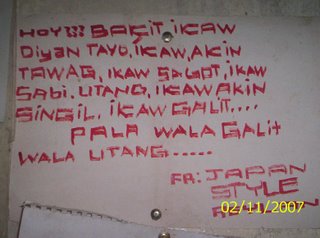 HOY!!! BAKIT, IKAW
DIYAN TAYO, IKAW, AKIN
TAWAG, IKAW SAGOT, IKAW
SABI. UTANG, IKAW AKIN
SINGIL, IKAW GALIT....
PALA WALA GALIT
WALA UTANG.....
FR: JAPAN
STYLE
02/11/2007